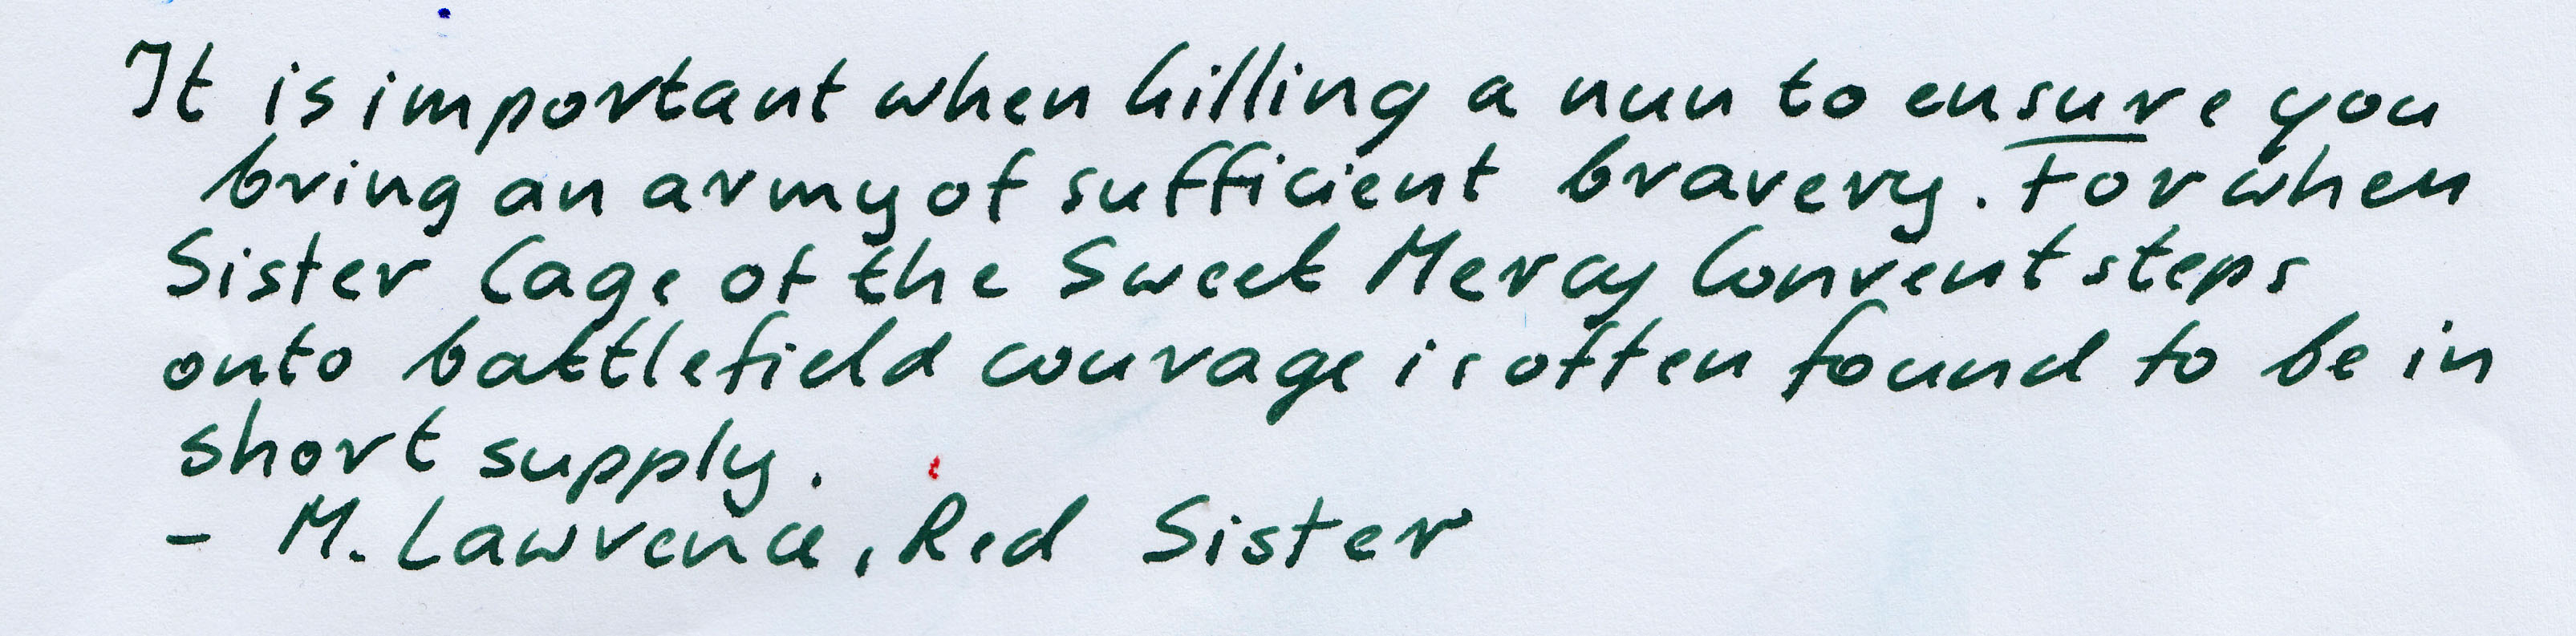 It is important when killing a nun to ensure you
bring an army of sufficient bravery. For when
Sister Cage of the Sweet Mercy Convent steps
onto battlefield courage is often found to be in
short supply.
- M. Lawrence, Red Sister